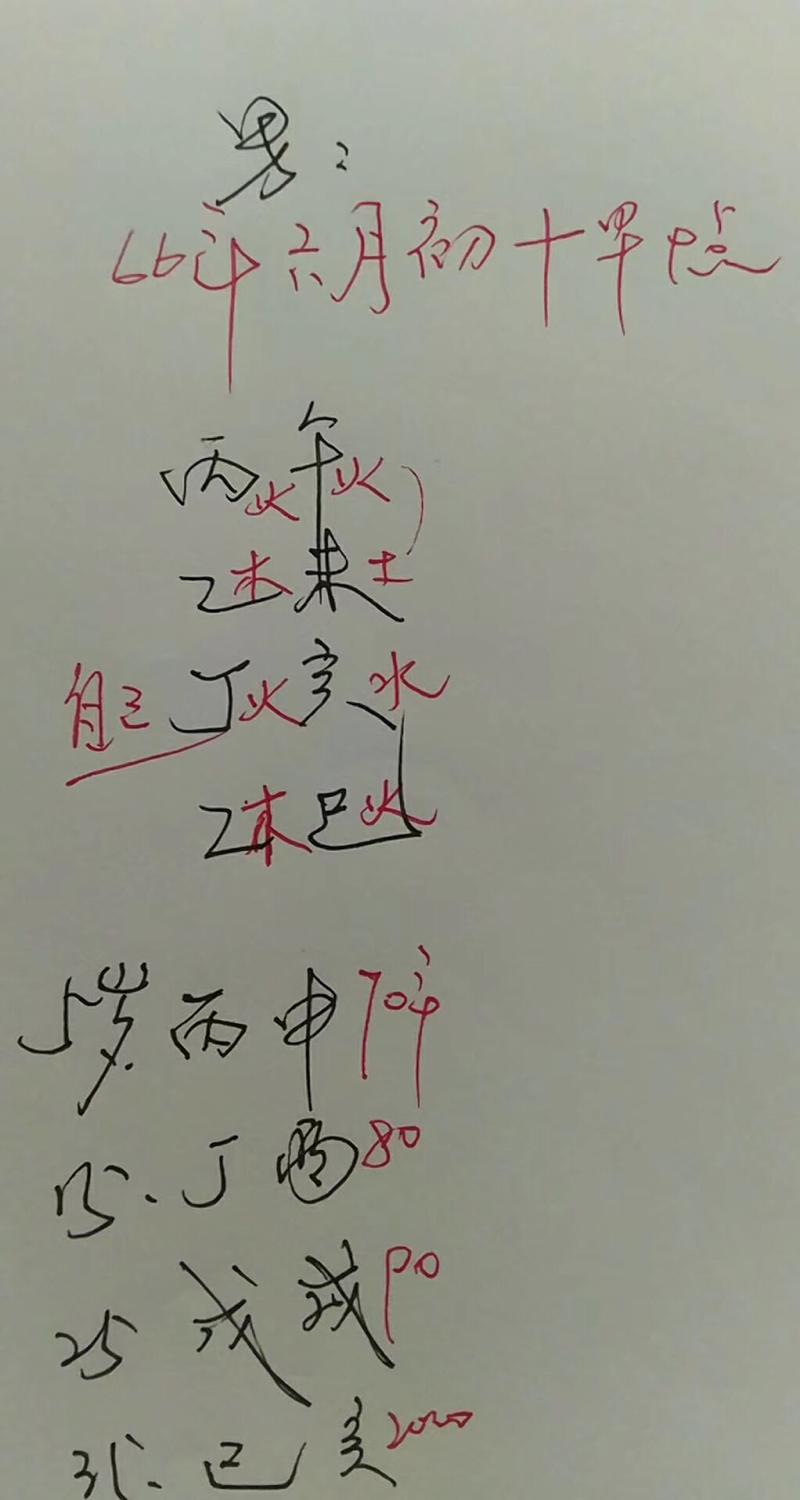 男:
66年六月初十早9点
丙火午火
乙木未土
自己丁火亥水
乙木巳火
5岁丙申70年
15.丁酉80
25戊戌90
35.己亥2000